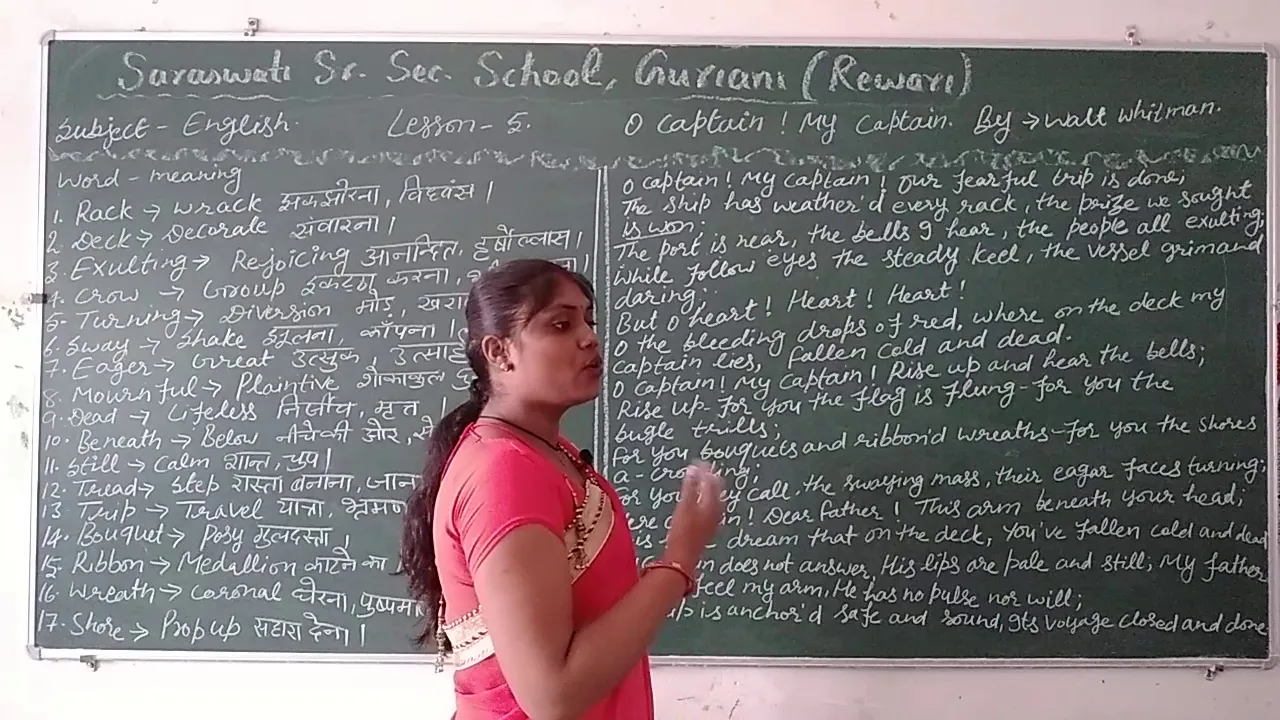 Saraswati Sr. Sec. School, Guriani (Rewari)
Subject - English. Lesson - 5. O Captain ! My Captain. By → Walt Whitman.
Word - meaning
1. Rack → Wrack झकझोरना, विध्वंस ।
2. Deck → Decorate संवारना ।
3. Exulting → Rejoicing आनन्दित, हर्षोल्लास ।
4. Crow → Group इकट्ठा करना,
5. Turning → Diversion मोड़,
6. Sway → Shake झूलना, काँपना ।
7. Eager → Great उत्सुक,
8. Mournful → Plaintive शोकाकुल
9. Dead → Lifeless निर्जीव, मृत ।
10. Beneath → Below नीचे की ओर,
11. Still → Calm शान्त, चुप ।
12. Tread → Step रास्ता बनाना,
13 Trip → Travel यात्रा, भ्रमण
14. Bouquet → Posy गुलदस्ता ।
15. Ribbon → Medallion काटने का
16. Wreath → Coronal घेरना,
17. Shore → Prop up सहारा देना ।
O captain ! My captain ! Our fearful trip is done;
The ship has weather'd every rack, the prize we sought
is won;
The port is near, the bells I hear, the people all exulting,
While follow eyes the steady keel, the vessel grim and
daring;
But O heart ! Heart ! Heart !
O the bleeding drops of red, where on the deck my
captain lies, fallen cold and dead.
O captain ! My captain ! Rise up and hear the bells;
Rise up - for you the flag is flung - for you the
bugle trills;
For you bouquets and ribbon'd wreaths - for you the shores
a - crowding;
For you they call, the swaying mass, their eagar faces turning;
! Dear father ! This arm beneath your head;
dream that on the deck, You've fallen cold and dead
does not answer, His lips are pale and still; My father
feel my arm, He has no pulse nor will;
is anchor'd safe and sound, its voyage closed and done